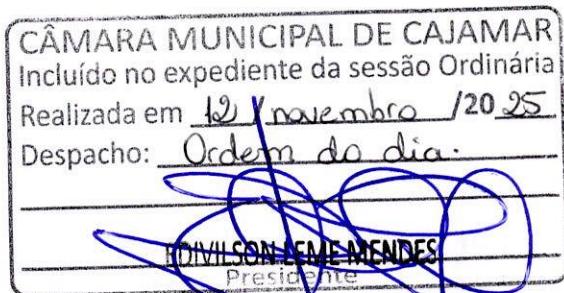 CÂMARA MUNICIPAL DE CAJAMAR
Incluído no expediente da sessão Ordinária
Realizada em 12 / novembro /20 25
Despacho: Ordem do dia.
EDIVILSON LEME MENDES
Presidente